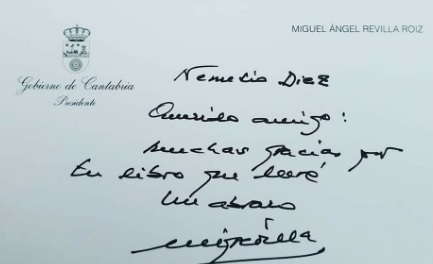 MIGUEL ÁNGEL REVILLA ROIZ
Gobierno de Cantabria
Presidente
Nemesio Diez
Querido amigo:
muchas gracias por
tu libro que leeré
Un abrazo